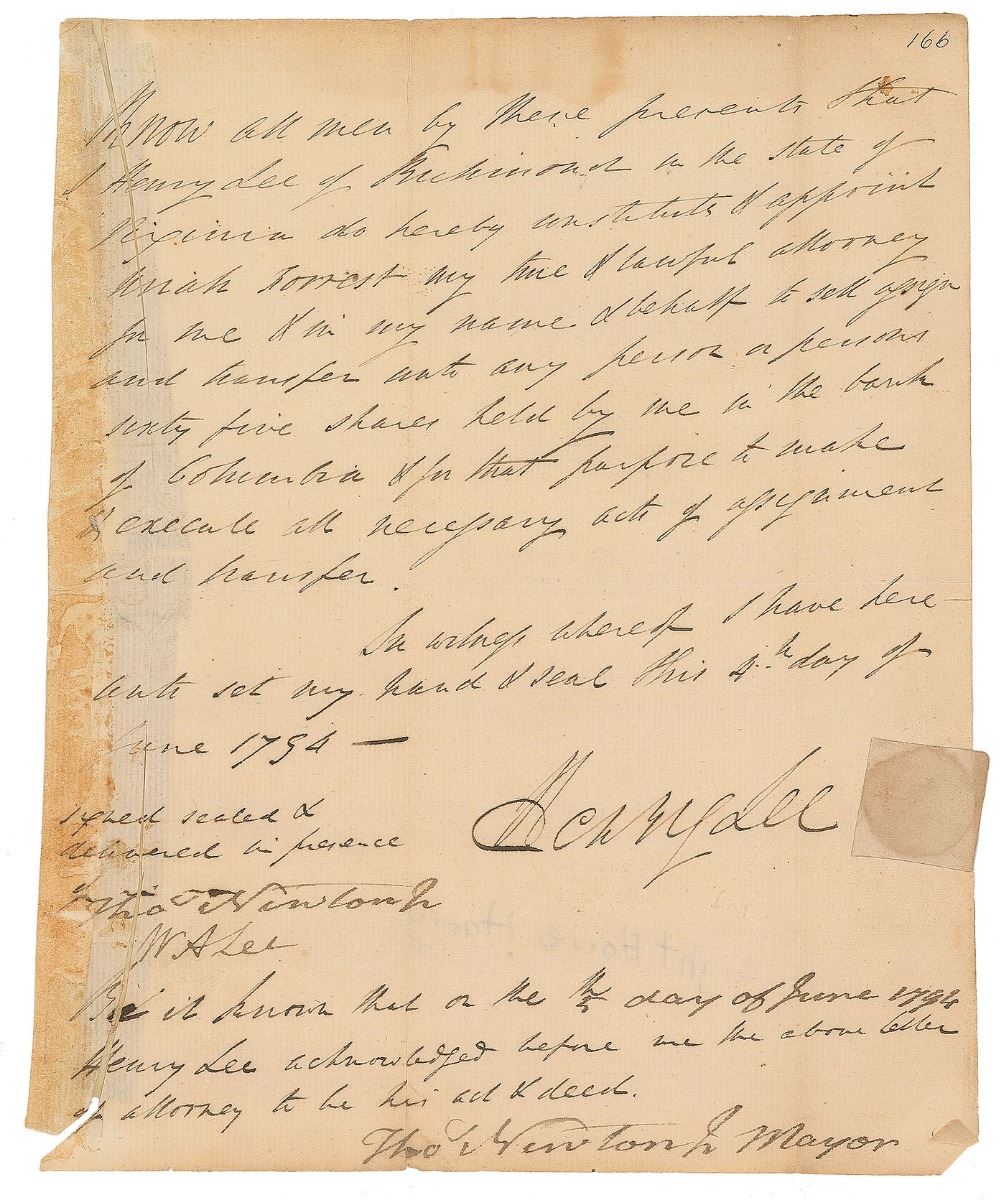 166
Know all men by these presents that
I Henry Lee of Richmond in the state of
Virginia do hereby constitute & appoint
Uriah Forrest my true & lawful attorney
for me & in my name & behalf to sell assign
and transfer unto any person or persons
sixty five shares held by me in the bank
of Columbia & for that purpose to make
& execute all necessary acts of assignment
and transfer.
In witness whereof I have here
unto set my hand & seal this 4th day of
June 1794 —
Henry Lee
signed sealed &
delivered in presence
of
Thos Newton Jr
W A Lee
Be it known that on the day of June 1794
Henry Lee acknowledged before me the above letter
of attorney to be his act & deed.
Thos Newton Jr Mayor